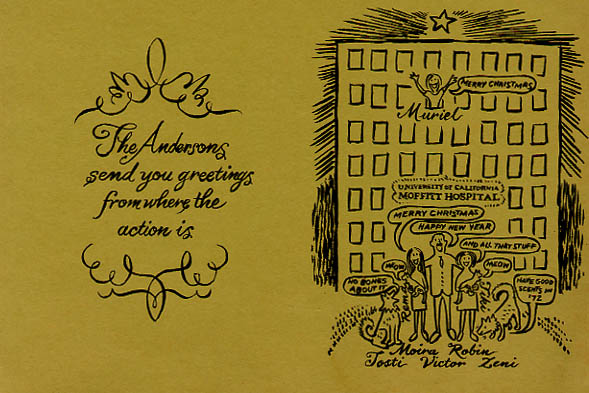 The Andersons
send you greetings
from where the
action is
MERRY CHRISTMAS
Muriel
UNIVERSITY OF CALIFORNIA
MOFFITT HOSPITAL
MERRY CHRISTMAS
HAPPY NEW YEAR
AND ALL THAT STUFF
MEOW
MEOW
NO BONES
ABOUT IT
HAVE GOOD
SCENTS IN
'72
Moira Robin
Tosti Victor Zeni